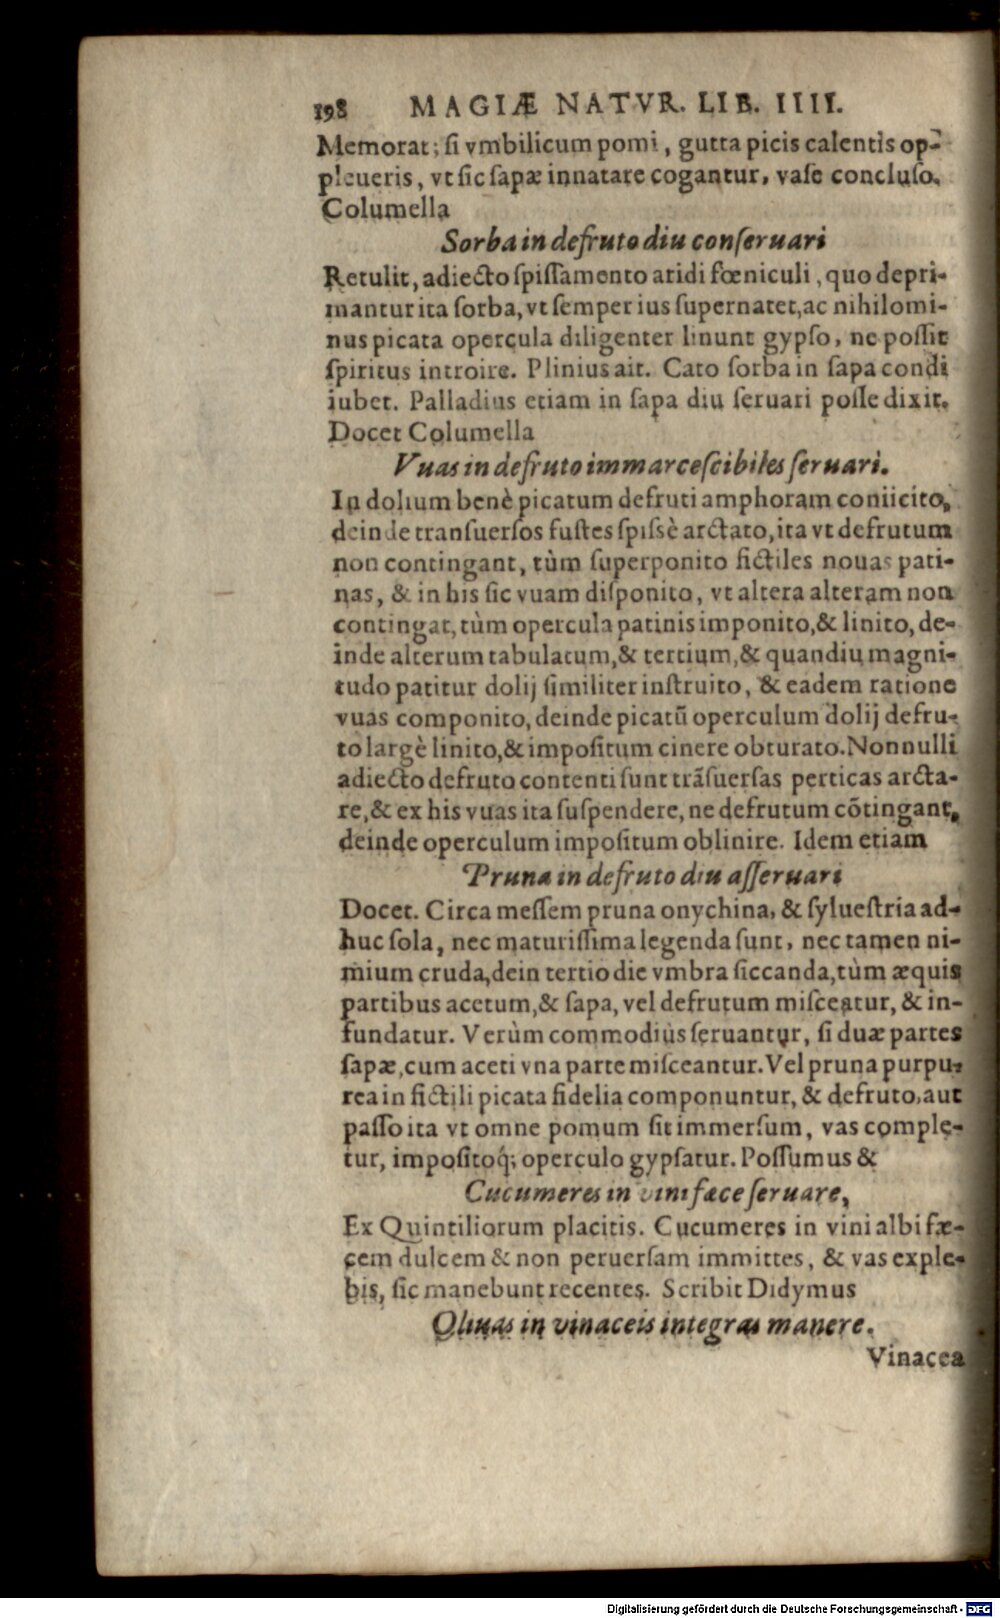 198 MAGIÆ NATVR. LIB. IIII.
Memorat; ſi vmbilicum pomi, gutta picis calentis op-
pleueris, vt ſic ſapæ innatare cogantur, vaſe concluſo.
Columella
Sorba in defruto diu conſeruari
Retulit, adiecto ſpiſſamento aridi fœniculi, quo depri-
mantur ita ſorba, vt ſemper ius ſupernatet, ac nihilomi-
nus picata opercula diligenter linunt gypſo, ne poſſit
ſpiritus introire. Plinius ait. Cato ſorba in ſapa condi
iubet. Palladius etiam in ſapa diu ſeruari poſſe dixit.
Docet Columella
Vuas in defruto immarceſcibiles ſeruari.
In dolium benè picatum defruti amphoram coniicito,
deinde tranſuerſos fuſtes ſpiſsè arctato, ita vt defrutum
non contingant, tùm ſuperponito fictiles nouas pati-
nas, & in his ſic vuam diſponito, vt altera alteram non
contingat, tùm opercula patinis imponito, & linito, de-
inde alterum tabulatum, & tertium, & quandiu magni-
tudo patitur dolij ſimiliter inſtruito, & eadem ratione
vuas componito, deinde picatũ operculum dolij defru-
to largè linito, & impoſitum cinere obturato. Nonnulli
adiecto defruto contenti ſunt trãſuerſas perticas arcta-
re, & ex his vuas ita ſuſpendere, ne defrutum cõtingant,
deinde operculum impoſitum oblinire. Idem etiam
Pruna in defruto diu aſſeruari
Docet. Circa meſſem pruna onychina, & ſylueſtria ad-
huc ſola, nec maturiſſima legenda ſunt, nec tamen ni-
mium cruda, dein tertio die vmbra ſiccanda, tùm æquis
partibus acetum, & ſapa, vel defrutum miſceatur, & in-
fundatur. Verùm commodiùs ſeruantur, ſi duæ partes
ſapæ, cum aceti vna parte miſceantur. Vel pruna purpu-
rea in fictili picata fidelia componuntur, & defruto, aut
paſſo ita vt omne pomum ſit immerſum, vas comple-
tur, impoſitoq́; operculo gypſatur. Poſſumus &
Cucumeres in vini fæce ſeruare,
Ex Quintiliorum placitis. Cucumeres in vini albi fæ-
cem dulcem & non peruerſam immittes, & vas exple-
bis, ſic manebunt recentes. Scribit Didymus
Oliuas in vinaceis integras manere.
Vinacea
Digitalisierung gefördert durch die Deutsche Forschungsgemeinschaft - DFG